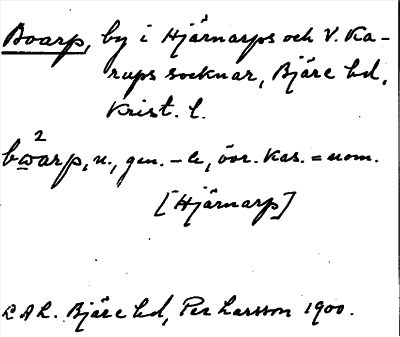 Boarp, by i Hjärnarps och V. Ka-
rups socknar, Bjäre hd,
Krist. l.
2
bωarp, n., gen. -e, övr. kas. = nom.
[Hjärnarp]
L A L. Bjäre hd, Per Larsson 1900.